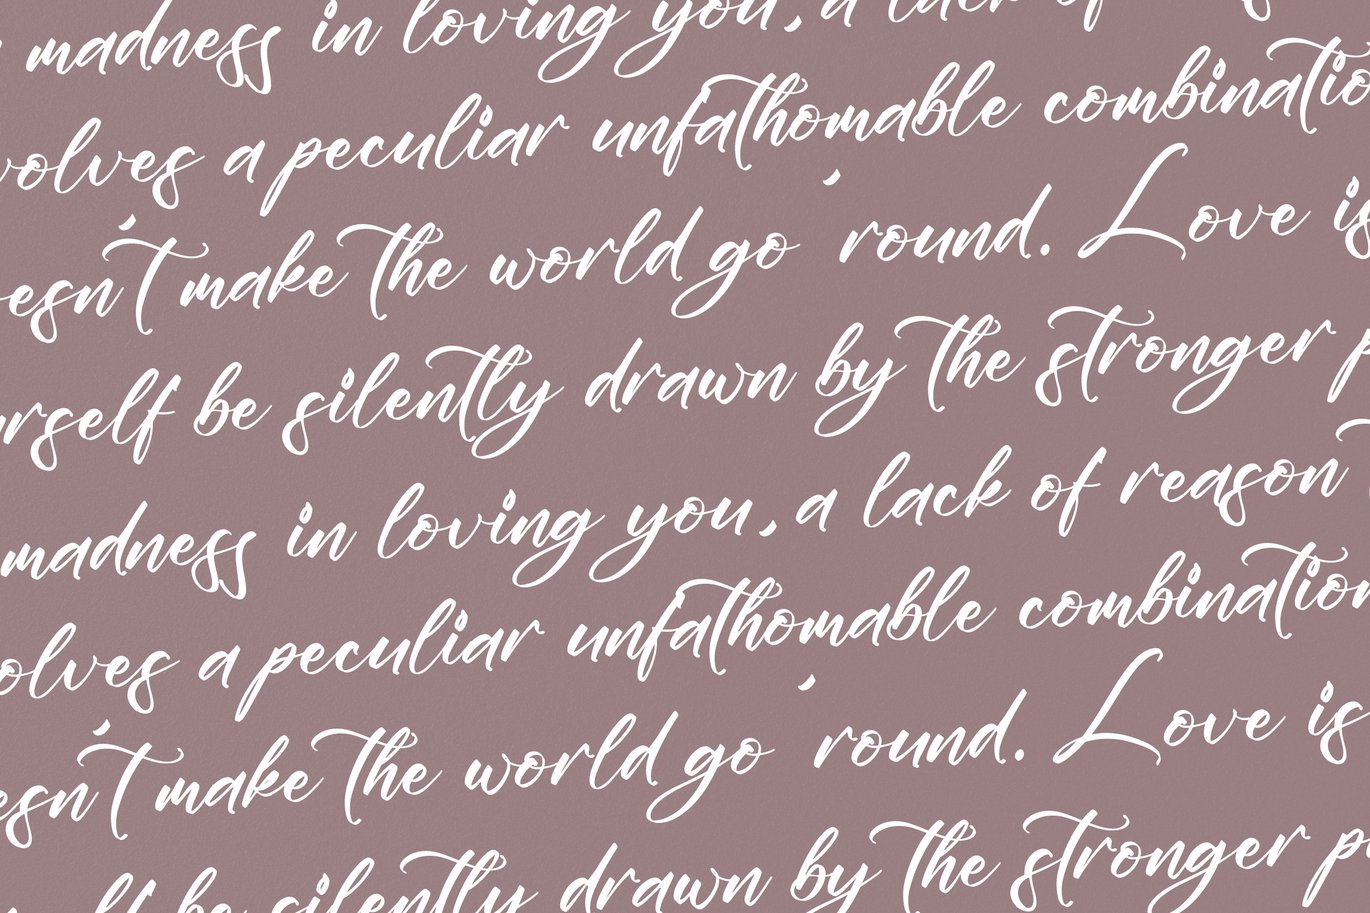 madness in loving you, a lack of
volves a peculiar unfathomable combinatio
esn't make the world go 'round. Love is
rself be silently drawn by the stronger p
madness in loving you, a lack of reason
olves a peculiar unfathomable combination
esn't make the world go 'round. Love is
lf be silently drawn by the stronger p